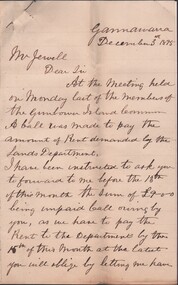 Gannawarra
December 3rd 1895
Mr Jewell
Dear Sir
At the Meeting held
on Monday last of the Members of
the Gunbower Island Common
A Call was made to pay the
amount of Rent demanded by the
Lands Department.
I have been instructed to ask you
to forward to me before the 13th
of this month the sum of
being unpaid Call owing by
you, as we have to pay the
Rent to the Department by the
15th of this Month at the latest
you will oblige by letting me have